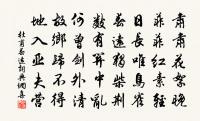 肅肅花絮晚
菲菲紅素輕
日長唯鳥雀
春遠獨柴荊
數有關中亂
何曾劍外清
故鄉歸不得
地入亞夫營
杜甫春遠詞典網書